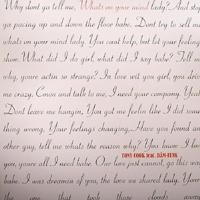 Why dont ya tell me, Whats on your mind lady? And stop
ya pacing up and down the floor babe. Dont try to sell me
whats on your mind lady. You cant help, but let your feelings
show. What did I do girl, what did I say babe? Tell me
why, youre actin so strange? In love wit you girl, you drive
me crazy. Cmon and talk to me, I need your company. You
Dont leave me hangin, You got me feelin like I did some
thing wrong. Your feelings changing, Have you found an
other guy, tell me the reason why? You know I love
you, youre all I need babe. Our love just cannot go this way
TONY COOK feat. DâM-FUNK
babe. I was dreamin of you, the love we shared lady. Your
the one that took those clouds away